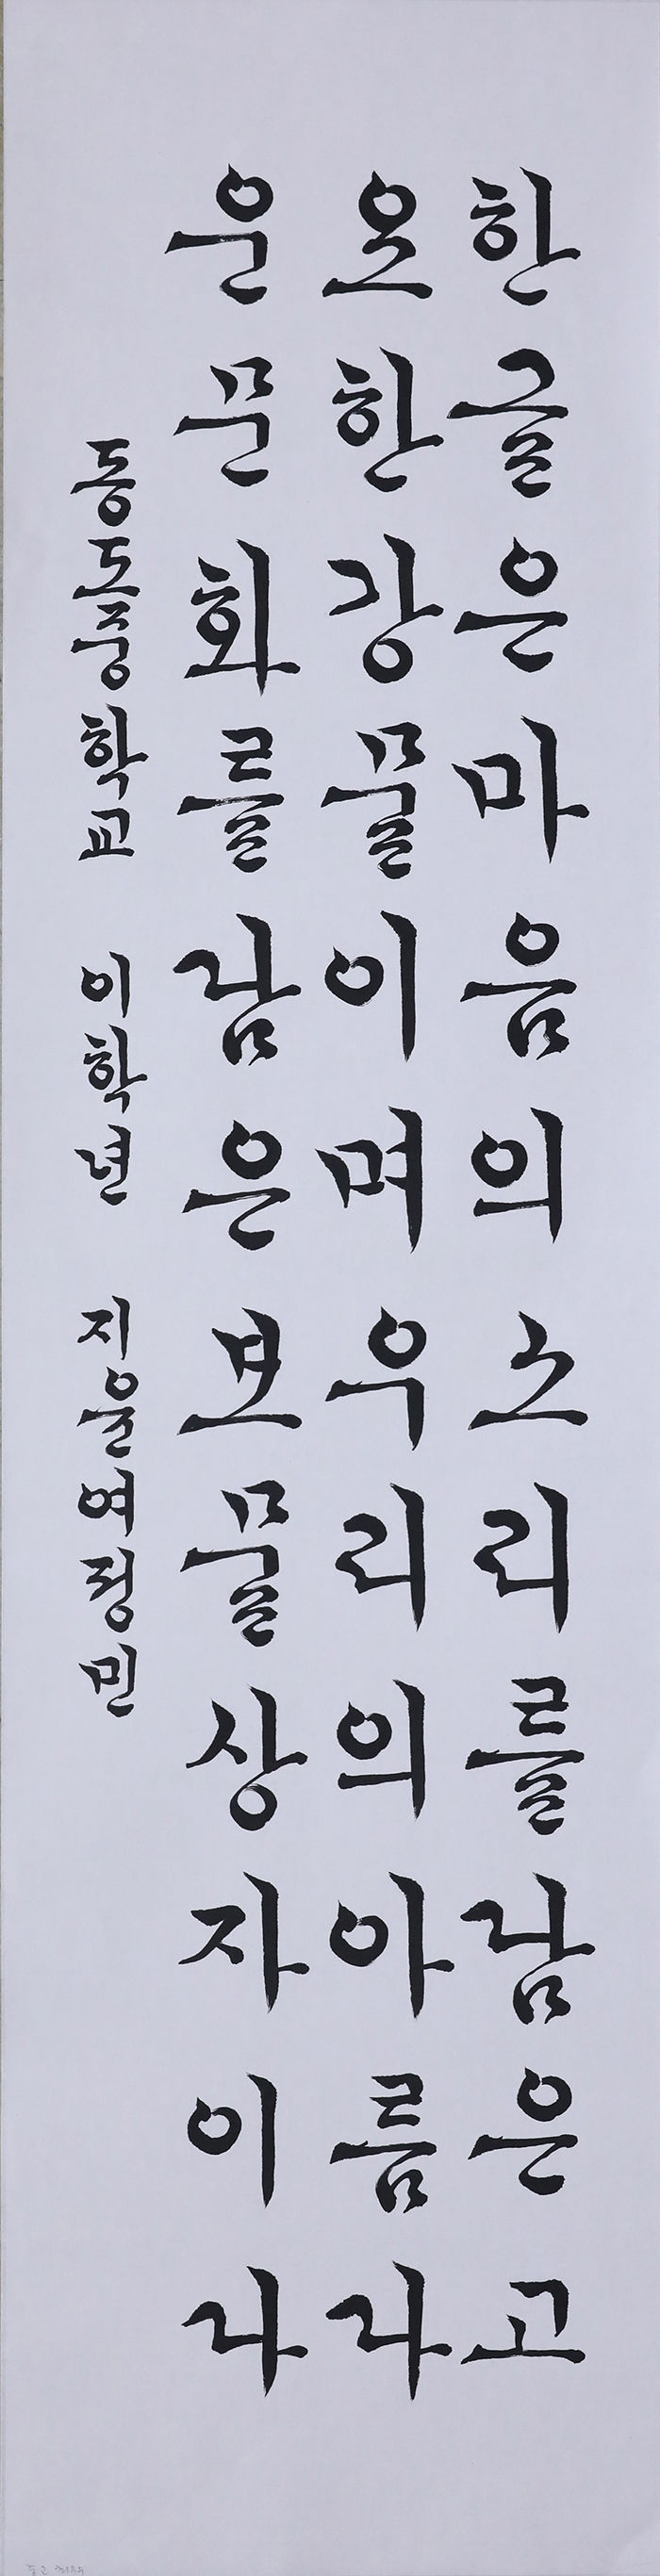 한글은마음의소리를담은고
요한강물이며우리의아름다
운문화를담은보물상자이다
동도중학교 이학년 지윤여정민